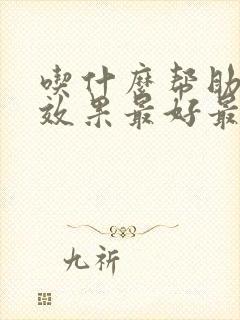 喫什麼帮助
效果最好最
九祈